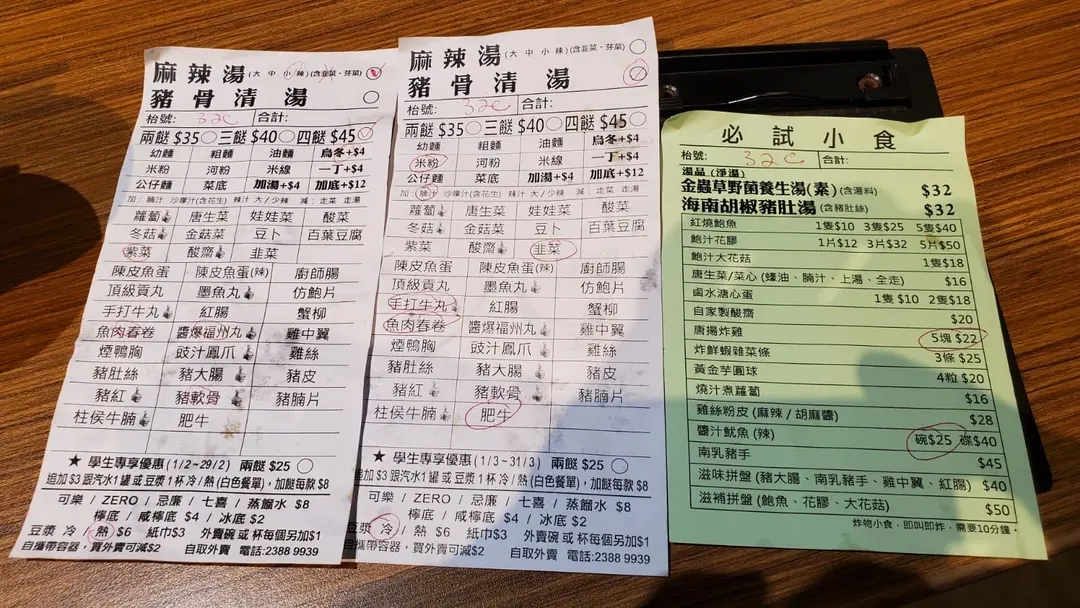 麻辣湯(大 中 小 辣)(含韮菜、芽菜)
豬骨清湯
枱號: 32C 合計:
兩餸 $35 三餸 $40 四餸 $45
幼麵 粗麵 油麵 烏冬+$4
米粉 河粉 米線 一丁+$4
公仔麵 菜底 加湯+$4 加底+$12
加: 腩汁 沙嗲汁(含花生) 辣汁 大/少辣 減: 走菜 走湯
蘿蔔 唐生菜 娃娃菜 酸菜
冬菇 金菇菜 豆卜 百葉豆腐
紫菜 酸齋 韮菜
陳皮魚蛋 陳皮魚蛋(辣) 廚師腸
頂級貢丸 墨魚丸 仿鮑片
手打牛丸 紅腸 蟹柳
魚肉春卷 醬爆福州丸 雞中翼
煙鴨胸 豉汁鳳爪 雞絲
豬肚絲 豬大腸 豬皮
豬紅 豬軟骨 豬腩片
柱侯牛腩 肥牛
★ 學生專享優惠 (1/2~29/2) 兩餸 $25
追加 $3 跟汽水1罐 或 豆漿 1 杯 冷 / 熱 (白色餐單), 加餸每款 $8
可樂 / ZERO / 忌廉 / 七喜 / 蒸餾水 $8
檸底 / 咸檸底 $4 / 冰底 $2
豆漿 冷 / 熱 $6 紙巾$3 外賣碗 或 杯每個另加$1
自攜帶容器,買外賣可減$2 自取外賣 電話:2388 9939
麻辣湯(大 中 小 辣)(含韮菜、芽菜)
豬骨清湯
枱號: 32C 合計:
兩餸 $35 三餸 $40 四餸 $45
幼麵 粗麵 油麵 烏冬+$4
米粉 河粉 米線 一丁+$4
公仔麵 菜底 加湯+$4 加底+$12
加: 腩汁 沙嗲汁(含花生) 辣汁 大/少辣 減: 走菜 走湯
蘿蔔 唐生菜 娃娃菜 酸菜
冬菇 金菇菜 豆卜 百葉豆腐
紫菜 酸齋 韮菜
陳皮魚蛋 陳皮魚蛋(辣) 廚師腸
頂級貢丸 墨魚丸 仿鮑片
手打牛丸 紅腸 蟹柳
魚肉春卷 醬爆福州丸 雞中翼
煙鴨胸 豉汁鳳爪 雞絲
豬肚絲 豬大腸 豬皮
豬紅 豬軟骨 豬腩片
柱侯牛腩 肥牛
★ 學生專享優惠 (1/3~31/3) 兩餸 $25
追加 $3 跟汽水1罐 或 豆漿 1 杯 冷 / 熱 (白色餐單), 加餸每款 $8
可樂 / ZERO / 忌廉 / 七喜 / 蒸餾水 $8
檸底 / 咸檸底 $4 / 冰底 $2
豆漿 冷 / 熱 $6 紙巾$3 外賣碗 或 杯每個另加$1
自攜帶容器,買外賣可減$2 自取外賣 電話:2388 9939
必試小食
枱號: 32C 合計:
湯品(淨湯)
金蟲草野菌養生湯(素)(含湯料) $32
海南胡椒豬肚湯(含豬肚絲) $32
紅燒鮑魚 1隻$10 3隻$25 5隻$40
鮑汁花膠 1片$12 3片$32 5片$50
鮑汁大花菇 1隻$18
唐生菜/菜心(蠔油、腩汁、上湯、全走) $16
鹵水溏心蛋 1隻 $10 2隻$18
自家製酸齋 $20
唐揚炸雞 5塊 $22
炸鮮蝦雜菜條 3條 $25
黃金芋圓球 4粒 $20
燒汁煮蘿蔔 $16
雞絲粉皮(麻辣 / 胡麻醬) $28
醬汁魷魚(辣) 碗$25 碟$40
南乳豬手 $45
滋味拼盤(豬大腸、南乳豬手、雞中翼、紅腸) $40
滋補拼盤(鮑魚、花膠、大花菇) $50
炸物小食,即叫即炸,需要10分鐘。